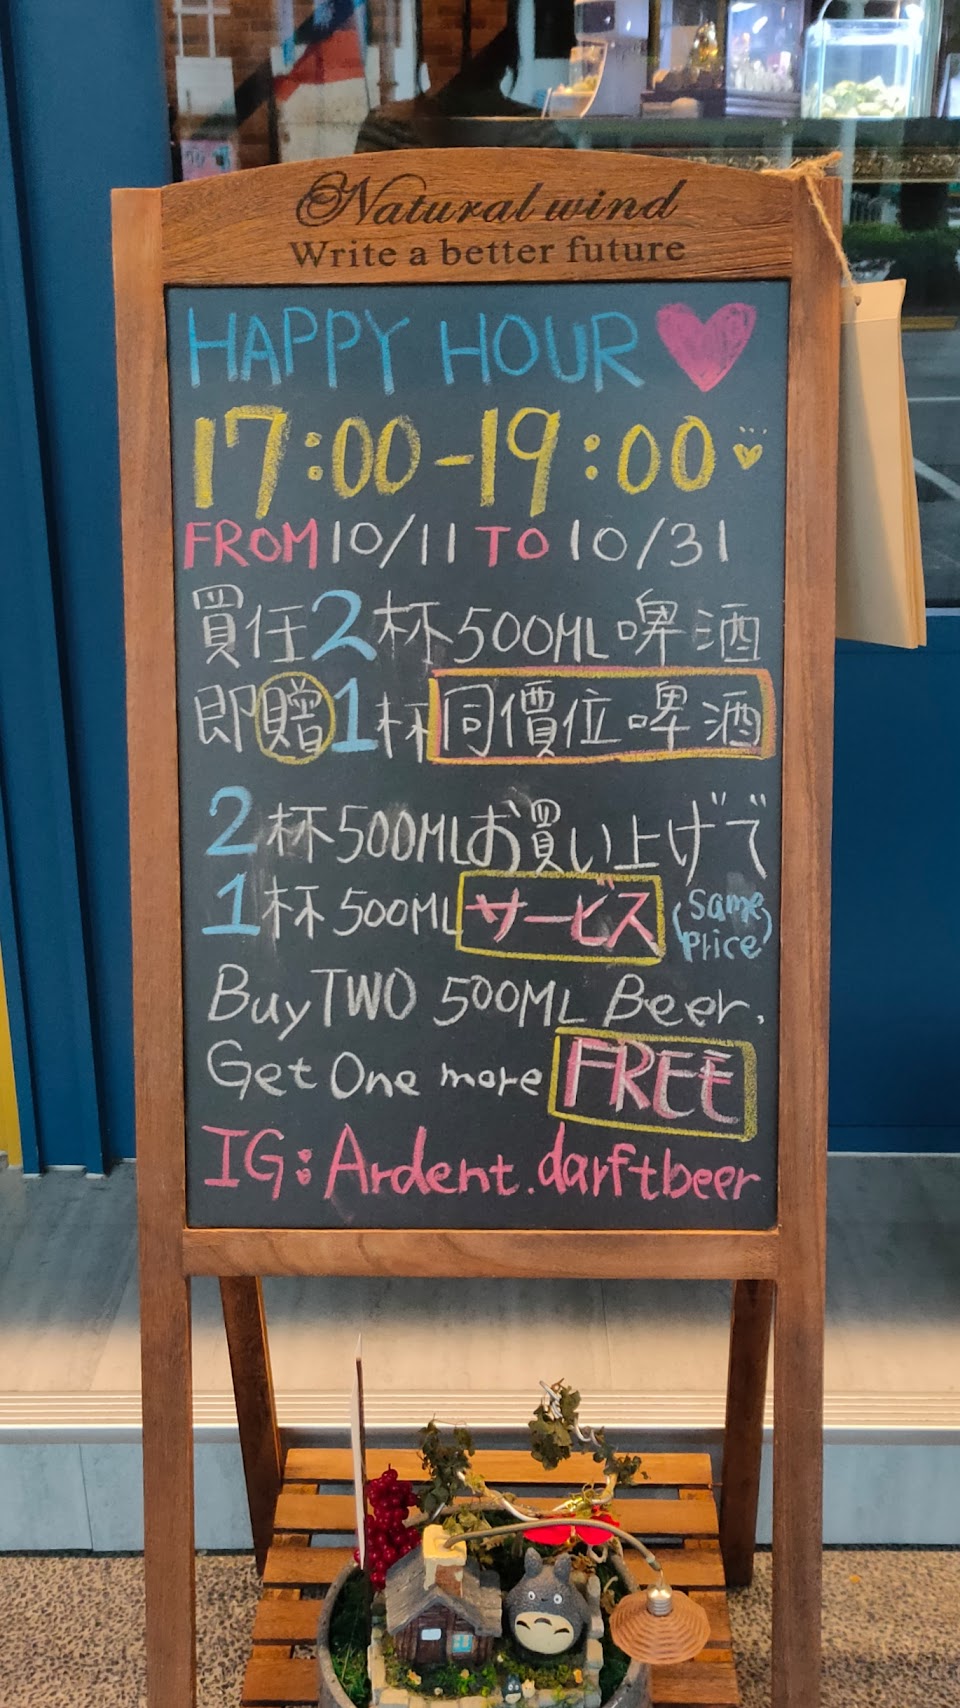 Natural wind
Write a better future
HAPPY HOUR
17:00-19:00
FROM 10/11 TO 10/31
買任2杯500ML啤酒
即贈1杯同價位啤酒
2杯500MLお買い上げで
1杯500MLサービス (same price)
Buy TWO 500ML Beer,
Get One more FREE
IG: Ardent.darftbeer